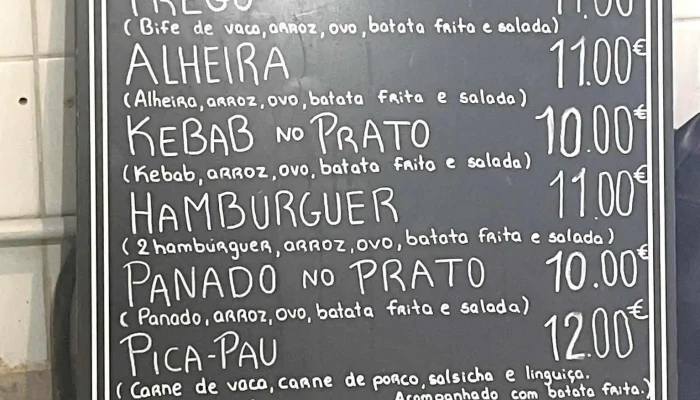 PREGO 11.00
(Bife de vaca, arroz, ovo, batata frita e salada)
ALHEIRA 11.00€
(Alheira, arroz, ovo, batata frita e salada)
KEBAB NO PRATO 10.00€
(Kebab, arroz, ovo, batata frita e salada)
HAMBURGUER 11.00€
(2 hambúrguer, arroz, ovo, batata frita e salada)
PANADO NO PRATO 10.00€
(Panado, arroz, ovo, batata frita e salada)
PICA-PAU 12.00€
(Carne de vaca, carne de porco, salsicha e linguiça.
Acompanhado com batata frita.)